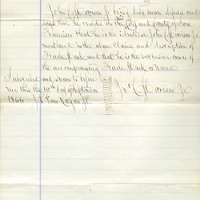 John C. Morrison Jr being duly sworn deposes and
says that he resides in the City and County of San
Francisco that he is the identical John C. Morrison Jr
mentioned in the above Claim and description of
Trade Mark and that he is the exclusive owner of
the accompanying Trade Mark or Name
Subscribed and sworn to before
me this the 10th day of September
1866
Jno C Morrison Jr